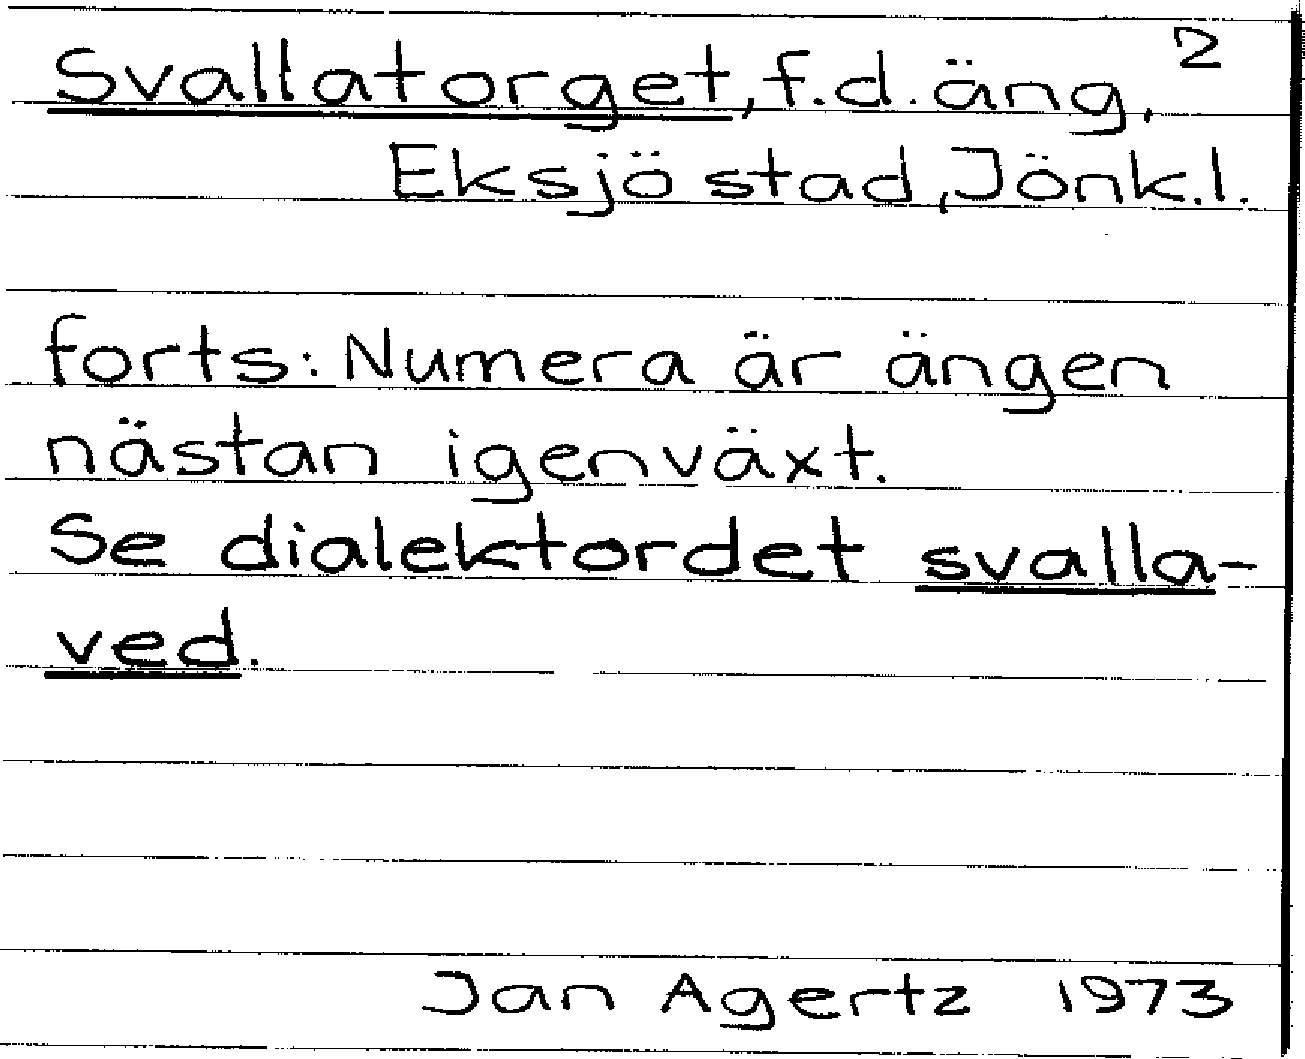 2
Svallatorget, f.d. äng,
Eksjö stad, Jönk.l.
forts: Numera är ängen
nästan igenväxt.
Se dialektordet svalla-
ved.
Jan Agertz 1973